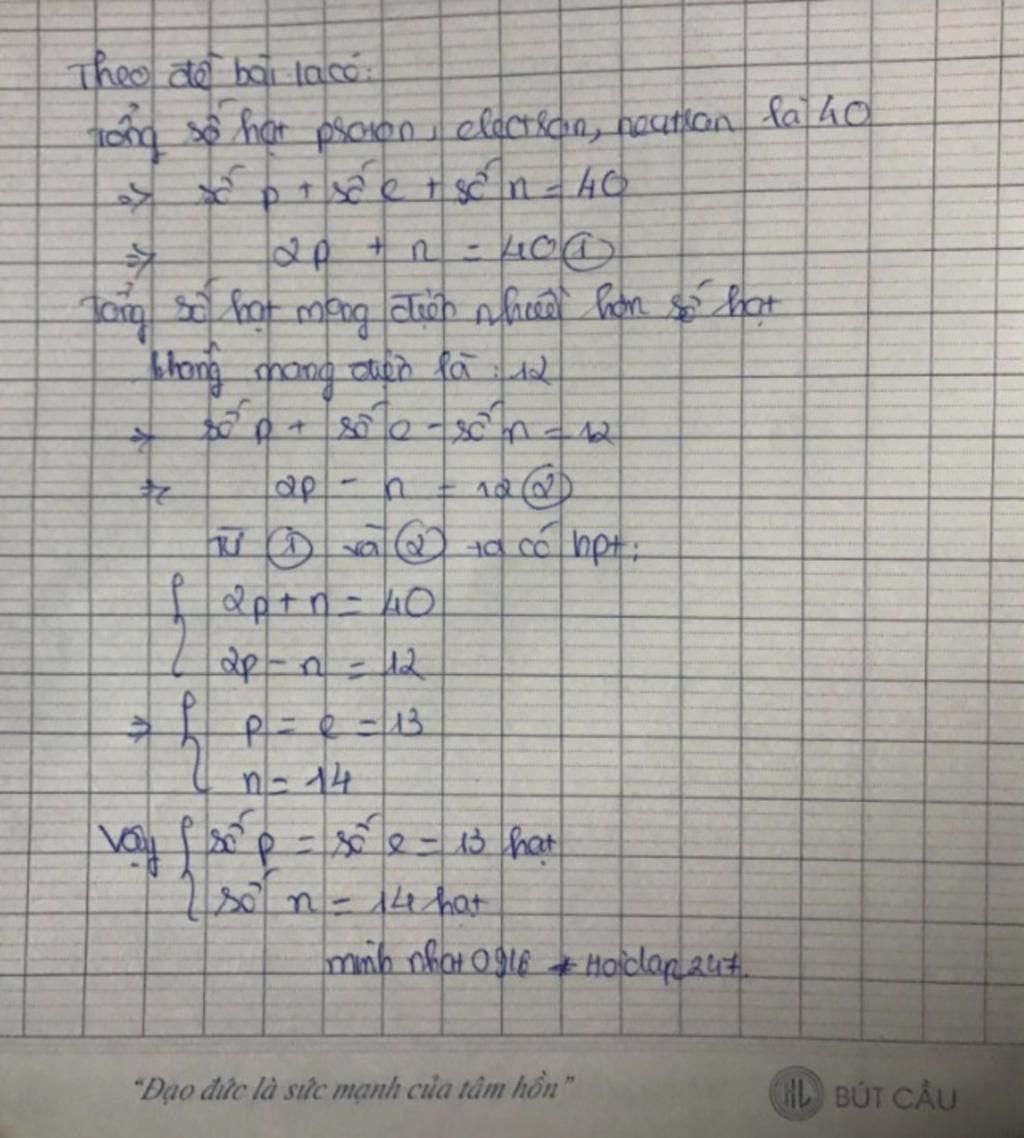 Theo đề bài ta có:
Tổng số hạt proton, electron, neutron là 40
=> số p + số e + số n = 40
=> 2p + n = 40 ①
Tổng số hạt mang điện nhiều hơn số hạt
không mang điện là : 12
=> số p + số e - số n = 12
=> 2p - n = 12 ②
Từ ① và ② ta có hpt:
{ 2p + n = 40
2p - n = 12
=> { p = e = 13
n = 14
Vậy { số p = số e = 13 hạt
số n = 14 hạt
minh nhat 0916 * Hoidap247.
"Đạo đức là sức mạnh của tâm hồn"
HL BÚT CẦU